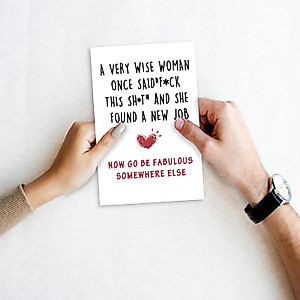 A VERY WISE WOMAN
ONCE SAID"F*CK
THIS SH*T" AND SHE
FOUND A NEW JOB
NOW GO BE FABULOUS
SOMEWHERE ELSE